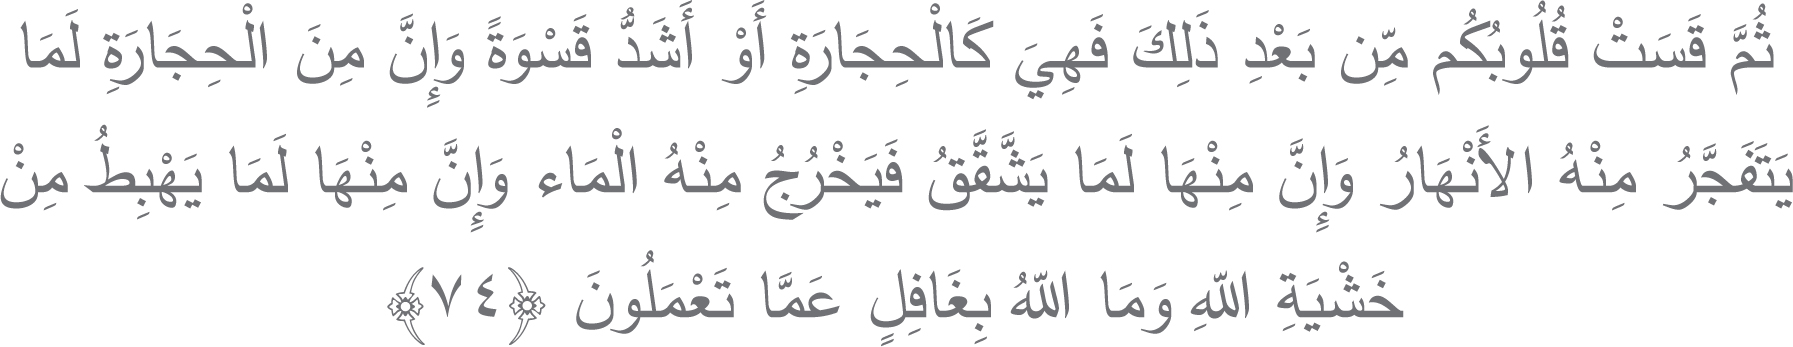 ثُمَّ قَسَتْ قُلُوبُكُم مِّن بَعْدِ ذَلِكَ فَهِيَ كَالْحِجَارَةِ أَوْ أَشَدُّ قَسْوَةً وَإِنَّ مِنَ الْحِجَارَةِ لَمَا
يَتَفَجَّرُ مِنْهُ الأَنْهَارُ وَإِنَّ مِنْهَا لَمَا يَشَّقَّقُ فَيَخْرُجُ مِنْهُ الْمَاء وَإِنَّ مِنْهَا لَمَا يَهْبِطُ مِنْ
خَشْيَةِ اللّهِ وَمَا اللّهُ بِغَافِلٍ عَمَّا تَعْمَلُونَ ﴿٧٤﴾